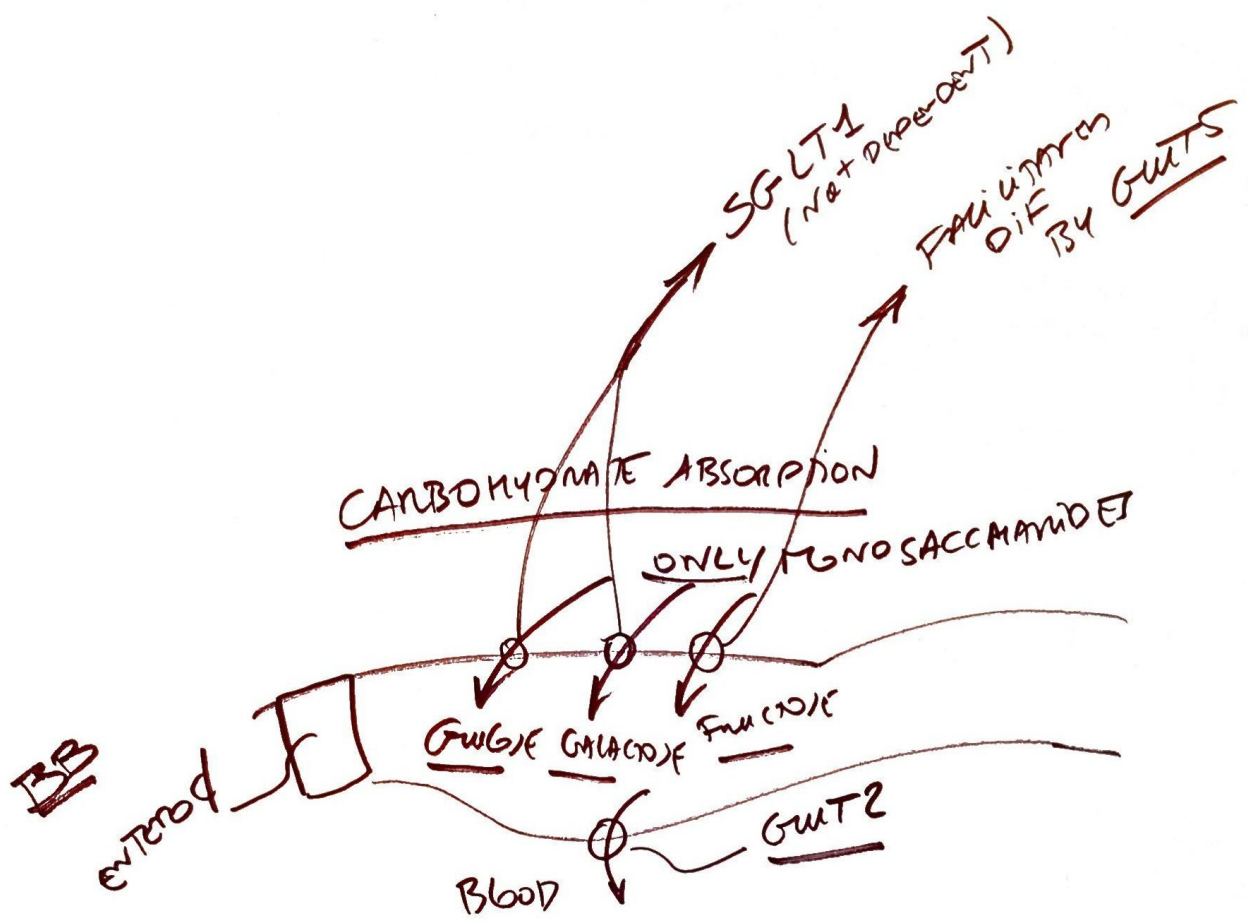 SGLT1
(Na+ DEPENDENT)
FACILITATED
DIF
BY GLUT5
CARBOHYDRATE ABSORPTION
ONLY MONOSACCHARIDES
GLUCOSE GALACTOSE FRUCTOSE
BB
ENTEROC
GLUT2
BLOOD